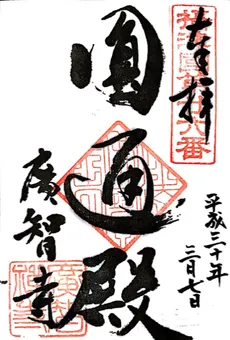 奉拝
圓通殿
廣智寺
平成三十年
三月七日